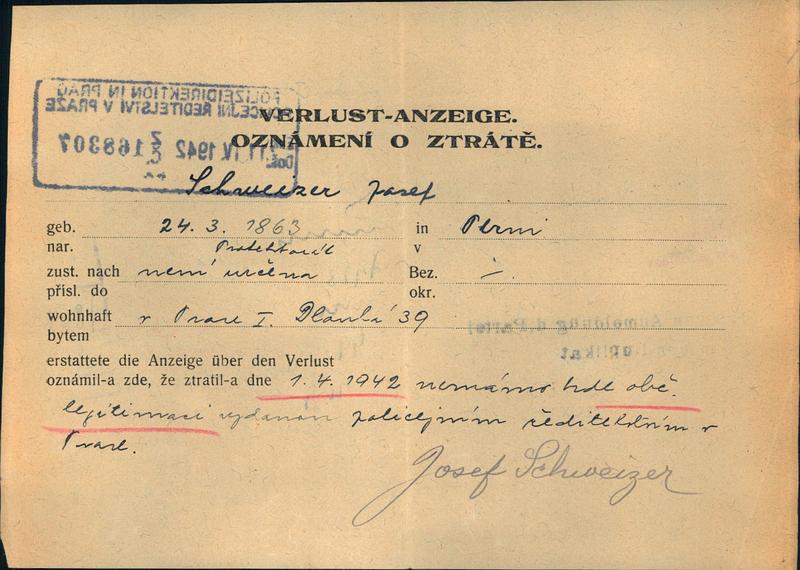 POLIZEIDIREKTION IN PRAG
POLICEJNÍ ŘEDITELSTVÍ V PRAZE
11. IV. 1942 Z Č 168307
Doš.
VERLUST-ANZEIGE.
OZNÁMENÍ O ZTRÁTĚ.
Schweizer Josef
geb. 24. 3. 1863 in
nar. v
Protektorát
zust. nach není určena Bez. -/-
přísl. do okr.
wohnhaft v Praze I. Dlouhá 39
bytem
erstattete die Anzeige über den Verlust
oznámil-a zde, že ztratil-a dne 1. 4. 1942 neznámo kde obč.
legitimaci vydanou policejním ředitelstvím v
Praze.
Josef Schweizer
Anmeldung d. Partei
Duplikat